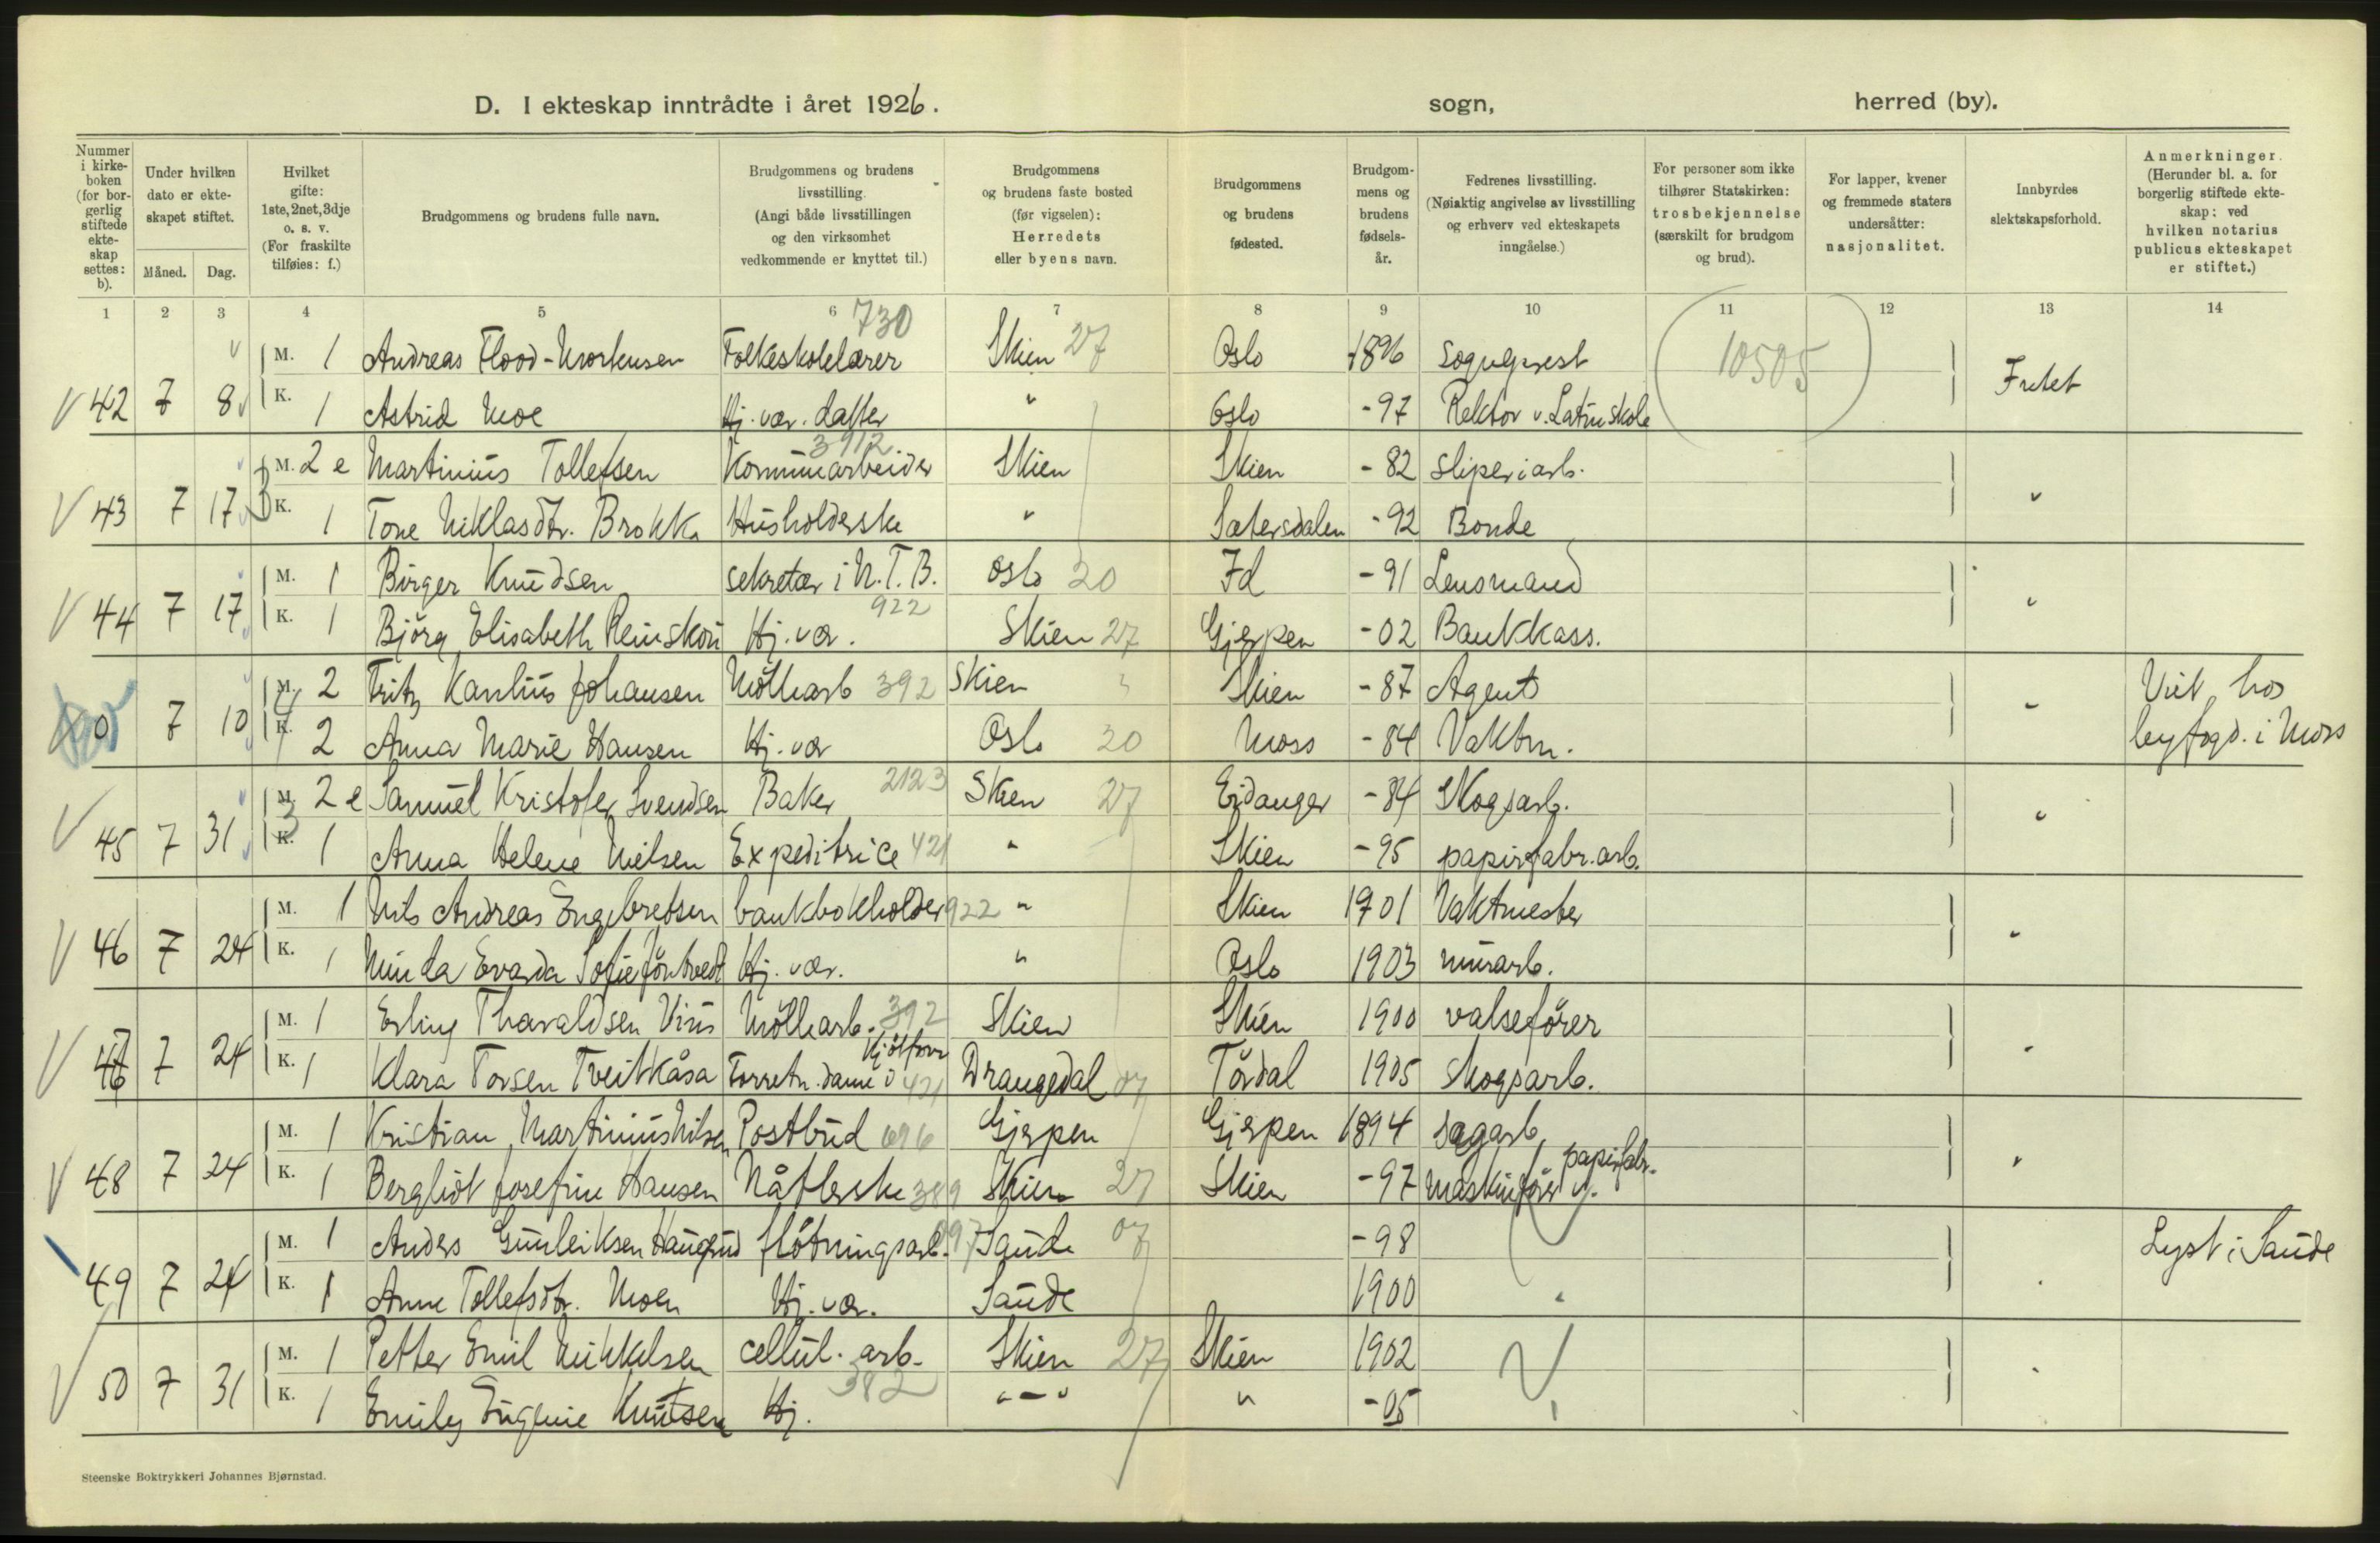 D. I ekteskap inntrådte i året 1926. sogn, herred (by).
Nummer i kirke-boken (for bor-gerlig stiftede ekte-skap settes: b).
Under hvilken dato er ekte-skapet stiftet.
Måned. Dag.
Hvilket gifte: 1ste, 2net, 3dje o. s. v. (For fraskilte tilføies: f.)
Brudgommens og brudens fulle navn.
Brudgommens og brudens livsstilling. (Angi både livsstillingen og den virksomhet vedkommende er knyttet til.)
Brudgommens og brudens faste bosted (før vigselen): Herredets eller byens navn.
Brudgommens og brudens fødested.
Brudgom-mens og brudens fødsels-år.
Fedrenes livsstilling. (Nøiaktig angivelse av livsstilling og erhverv ved ekteskapets inngåelse.)
For personer som ikke tilhører Statskirken: trosbekjennelse (særskilt for brudgom og brud).
For lapper, kvener og fremmede staters undersåtter: nasjonalitet.
Innbyrdes slektskapsforhold.
Anmerkninger. (Herunder bl. a. for borgerlig stiftede ekte-skap: ved hvilken notarius publicus ekteskapet er stiftet.)
1 2 3 4 5 6 7 8 9 10 11 12 13 14
730
M. 1 Andreas Flood-Mortensen Folkeskolelærer Skien 27 Oslo 1896 Sogneprest 10505
42 7 8 K. 1 Astrid Moe Hj. vær. datter " Oslo -97 Rektor v. Latinskole Intet
3912
M. 2 e Martinius Tollefsen Kommunearbeider Skien Skien -82 Sliperiarb.
43 7 17 K. 1 Tone Niklasdtr. Brokka Husholderske " Sætersdalen -92 Bonde "
M. 1 Birger Knudsen sekretær i N.T.B. Oslo 20 Id -91 Lensmand
922
44 7 17 K. 1 Björg Elisabeth Reinskou Hj. vær. Skien 27 Gjerpen -02 Bankkass. "
M. 2 Fritz Kanlius Johansen Möllearb 392 Skien Skien -87 Agent Viet hos
0 7 10 K. 2 Anna Marie Hansen Hj. vær Oslo 20 Moss -84 Vaktm. " byfogd. i Moss
M. 2 e Samuel Kristofer Svendsen Baker 2123 Skien 27 Eidanger -84 Skogsarb.
45 7 31 K. 1 Anna Helene Nielsen Expeditrice 421 " Skien -95 papirfabr. arb. "
M. 1 Nils Andreas Engebretsen bankbokholder 922 " Skien 1901 Vaktmester
46 7 24 K. 1 Minda Evarda Sofie Jöntvedt Hj. vær. " Oslo 1903 murarb. "
M. 1 Erling Tharaldsen Viris Möllearb. 392 Skien Skien 1900 valsefører
47 7 24 K. 1 Klara Torsen Tveitkåsa Forretn. dame 421 Drangedal 07 Tørdal 1905 Skogsarb. "
M. 1 Kristian Martinius Nilsen Postbud 696 Gjerpen Gjerpen 1894 Sagarb.
48 7 24 K. 1 Bergliot Josefine Hansen Nåtlerske 389 Skien 27 Skien -97 Maskinfører v. papirfabr. "
M. 1 Anders Gunleiksen Haugrud fløtningsarb. 097 Saude 07 -98 Lyst i Saude
49 7 24 K. 1 Anne Tollefsdtr. Moen Hj. vær. Saude 1900 " "
M. 1 Petter Emil Mikkelsen cellul. arb. Skien 27 Skien 1902
50 7 31 K. 1 Emily Eugenie Knutsen Hj. 382 "-" " -05 "
Steenske Boktrykkeri Johannes Bjørnstad.